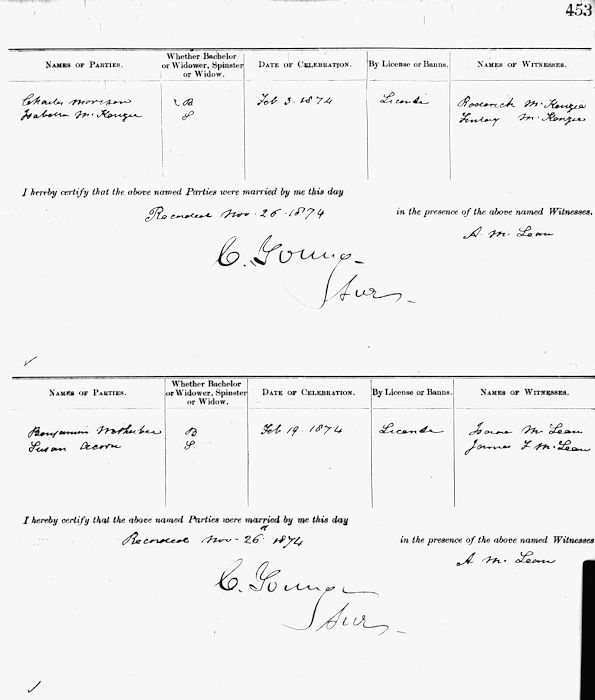 453
NAMES OF PARTIES. Whether Bachelor or Widower, Spinster or Widow. DATE OF CELEBRATION. By License or Banns. NAMES OF WITNESSES.
Charles Morrison B Feb 3 1874 License Roderick McKenzie
Isabella McKenzie S Finlay McKenzie
I hereby certify that the above named Parties were married by me this day
Recorded Nov. 26 1874 in the presence of the above named Witnesses.
A. McLean
C. Young
Surr
NAMES OF PARTIES. Whether Bachelor or Widower, Spinster or Widow. DATE OF CELEBRATION. By License or Banns. NAMES OF WITNESSES.
Benjamin B Feb 19. 1874 License McLean
Susan Acorn S James F McLean
I hereby certify that the above named Parties were married by me this day
Recorded Nov. 26 1874 in the presence of the above named Witnesses
A McLean
C. Young
Surr